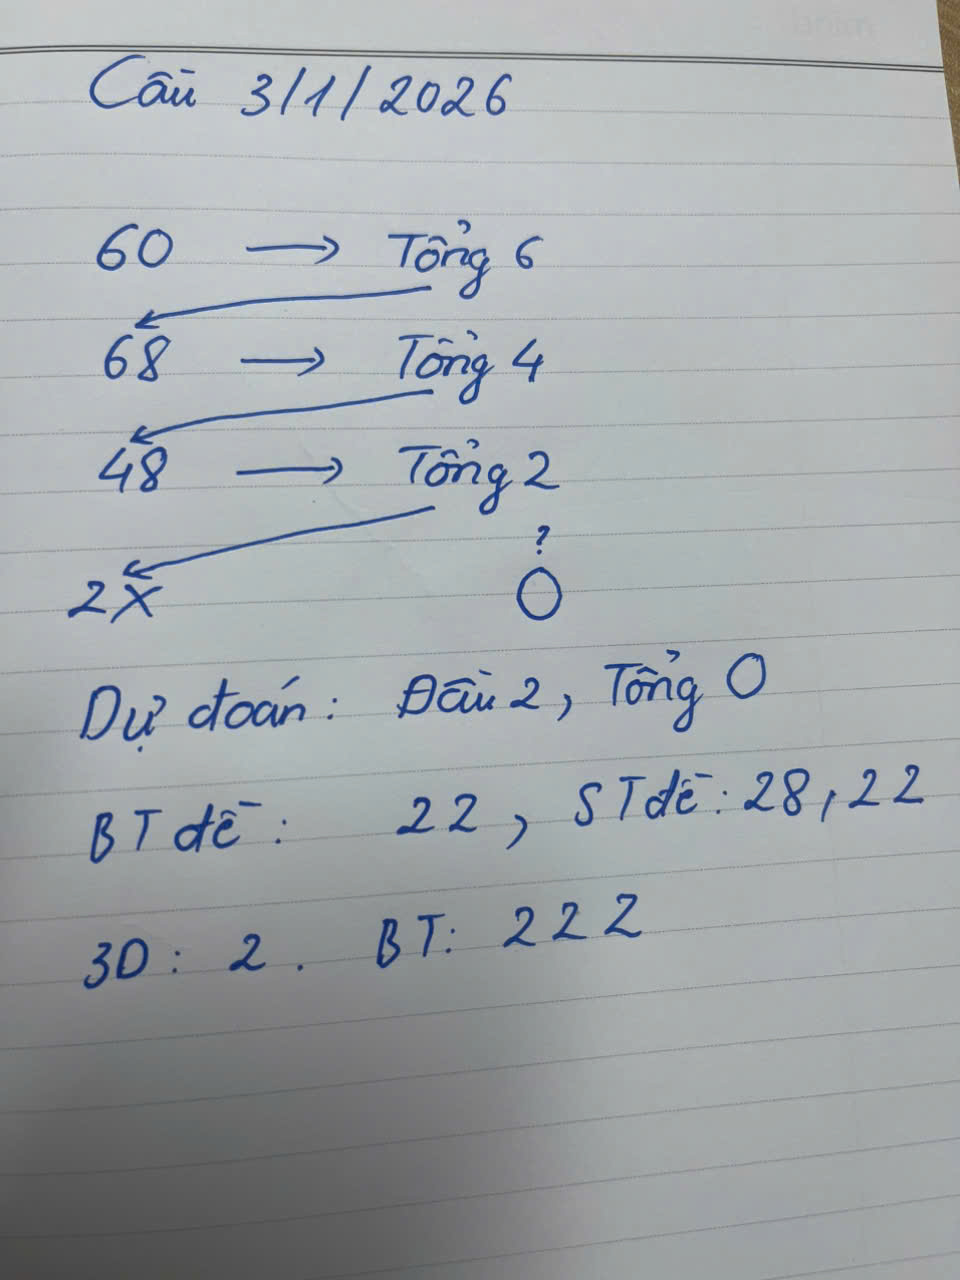 Cầu 3/1/2026
60 → Tổng 6
68 → Tổng 4
48 → Tổng 2
?
2X O
Dự đoán: Đầu 2, Tổng 0
BT đề: 22, ST đề: 28, 22
3D: 2. BT: 222